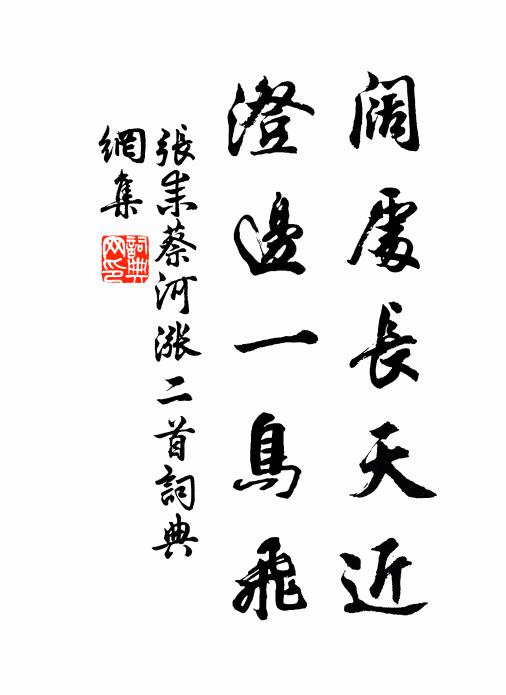 闊處長天近
澄邊一鳥飛
張耒蔡河漲二首詞典
網集
詞典
网印